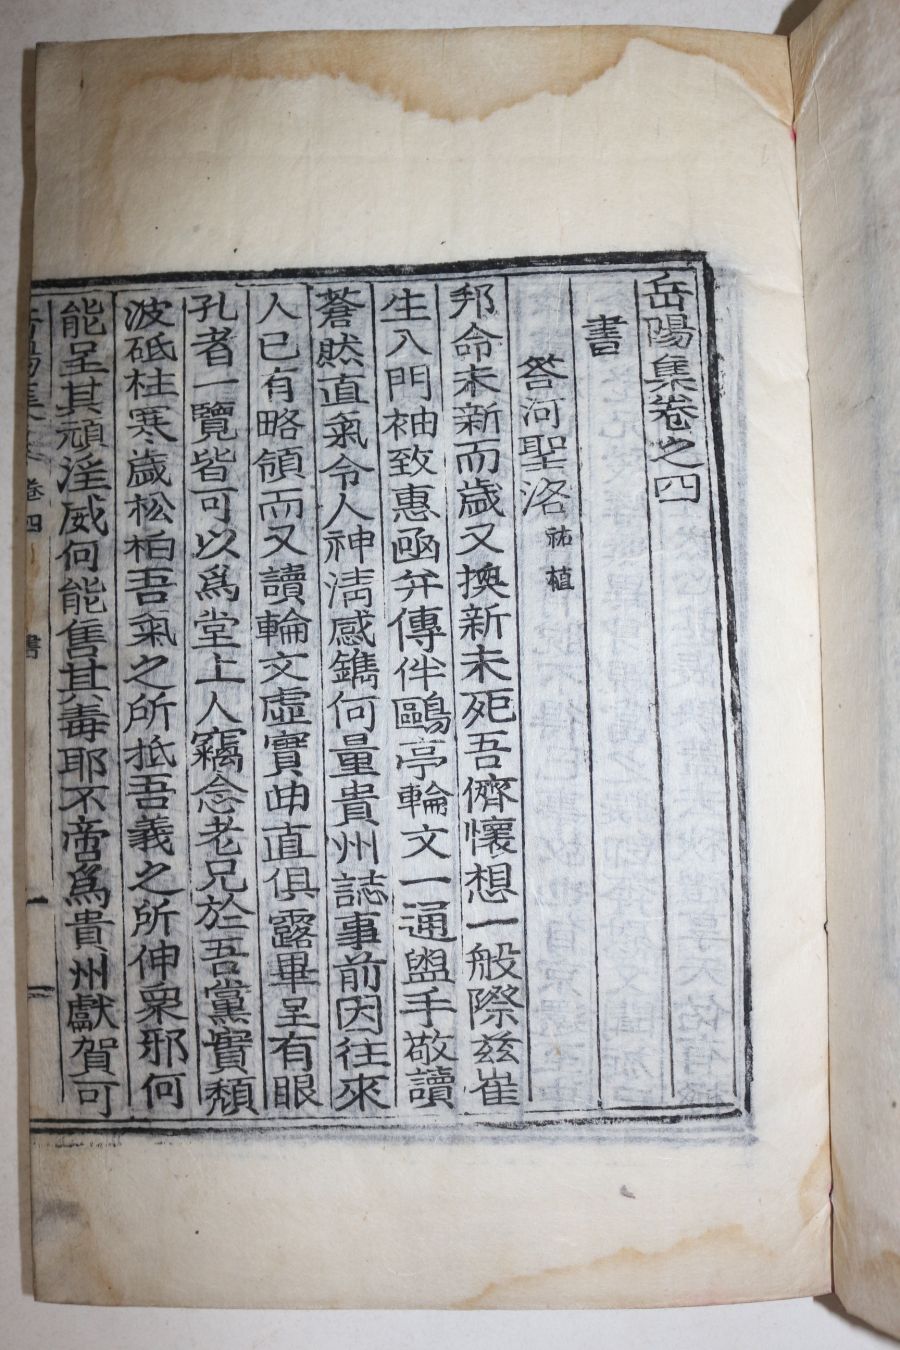 岳陽集卷之四
書
答河聖洛祐植
邦命未新而歲又換新未死吾儕懷想一般際玆崔
生入門袖致惠凾弁傳伴鷗亭輪文一通盥手敬讀
蒼然直氣令人神淸感鐫何量貴州誌事前因往來
人已有略領而又讀輪文虛實曲直俱露畢呈有眼
孔者一覽皆可以爲堂上人竊念老兄於吾黨實頹
波砥柱寒歲松柏吾氣之所抵吾義之所伸衆邪何
能呈其頑淫威何能售其毒耶不啻爲貴州獻賀可
卷四
書
一